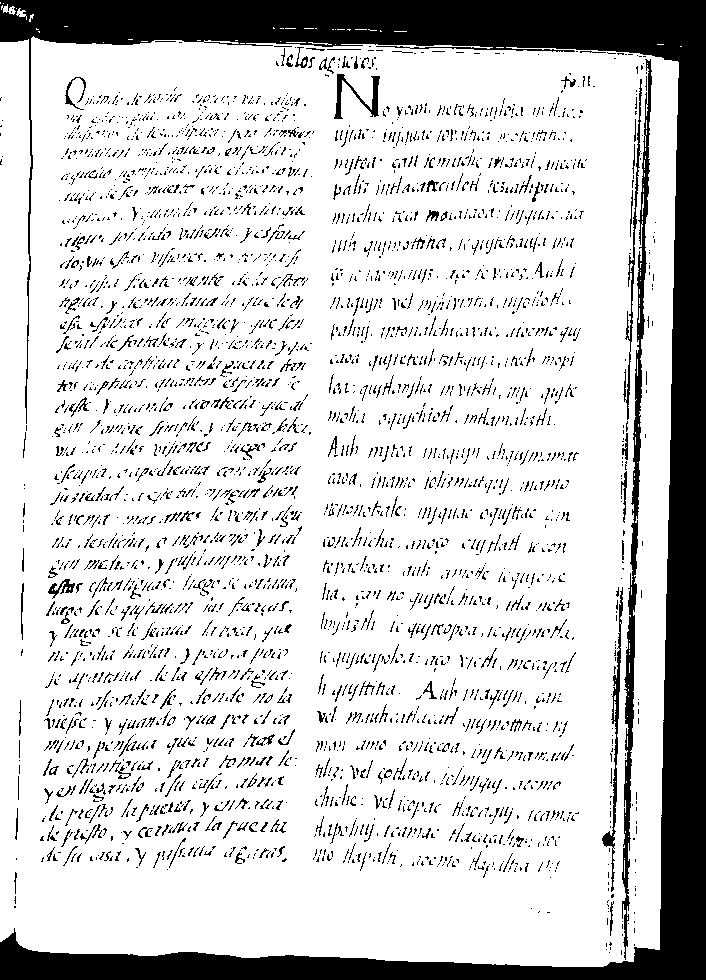 de los agueros.
fo. 11.
Quando de noche alguno via, algu-
na estantigua, con saber que eran
illusiones de tezcatlipuca: pero tambien
tomauan mal aguero, en pensar q̃
aquello
tuuja de ser muerto en la guerra, o
captiuo. Y quando acontecia que
algun soldado valiente y esforça
do, via estas visiones, no temja: si
no asia fuertemente de la estan
tigua, y demandauala que le di
esse espinas de maguey que son
señal de fortaleza, y valentia: y que
auja de captiuar en la guerra tan
tos captiuos, quantas espinas le
diesse. Y quando acontecia que al
gun hombre simple, y de poco saber,
via las tales visiones luego las
escupia, o apedreaua con alguna
suziedad: a este tal, ningun bien
le venja: mas antes le venja algu
na desdicha, o infortunjo Y si al
gun medroso, y pusillanimo via
estas estantiguas: luego se cortaua,
luego se le qujtauan las fuerças.
y luego se le secaua la boca, que
no podia hablar. y poco, a poco
se apartaua de la estantigua:
para asconderse, donde no la
viesse: y quando yua por el ca
mino, pensaua que yua tras el
la estantigua, para tomarle:
y en llegando a su casa, abria
de presto la puerta, y entraua
de presto, y cerraua la puerta
de su casa, y passaua a gatas,
No yoan netetzaujloia in tlaca
iniquac iovaltica motettitia,
injtoa: çan ie muche inaoal, inecue
paliz in tlacatecolotl tezcatlipuca,
muchie teca mocaiaoa: injquac aca
iuh qujmottitia, ic qujtetzauja ma
ço ie iaomjqujz, aço ie vicoz. Auh i
naqujn vel mihivintia, injollotla
paltic, intonalchicavac, aocmo quj
caoa
loa: qujtlanjlia in vitztli, inic qujte
motia oqujchiotl, in tlamaliztli.
Auh injtoa in aqujn ahqujmamat
caoa, in amo iolizmatquj, in amo
nenonotzale: injquac oqujttac çan
conchicha, anoço cujtlatl ic con
tepachoa: auh amotle ic qujcne
lia, çan no qujtelchioa, itla neto
linjliztli ic qujtecopoa, ic qujmotla,
ic qujcuepoloa: aço victli, mecapal
li qujttitia. Auh in aqujn, çan
vel mauhcatlacatl qujmottitia: nj
man amo conjecoa, injc temamauh
tiliz: vel çotlaoa, iolmjquj, aocmo
chiche: vel icopac tlacaquj, icamac
tlapoliuj, icamac
mo tlapalti, aocmo